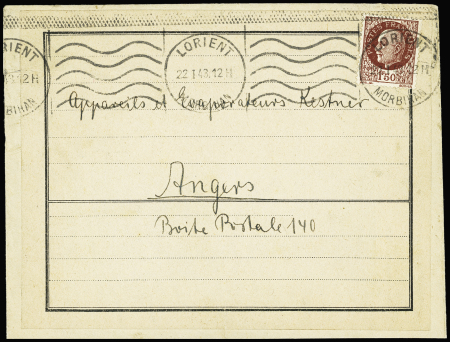 LORIENT
22 I 43. 12 H
MORBIHAN
LORIENT
12 H
MORBIHAN
POSTES FRANÇAISES
1F50
LORIENT
12 H
MORBIHAN
Appareils et Evaporateurs Kestner
Angers
Boite Postale 140